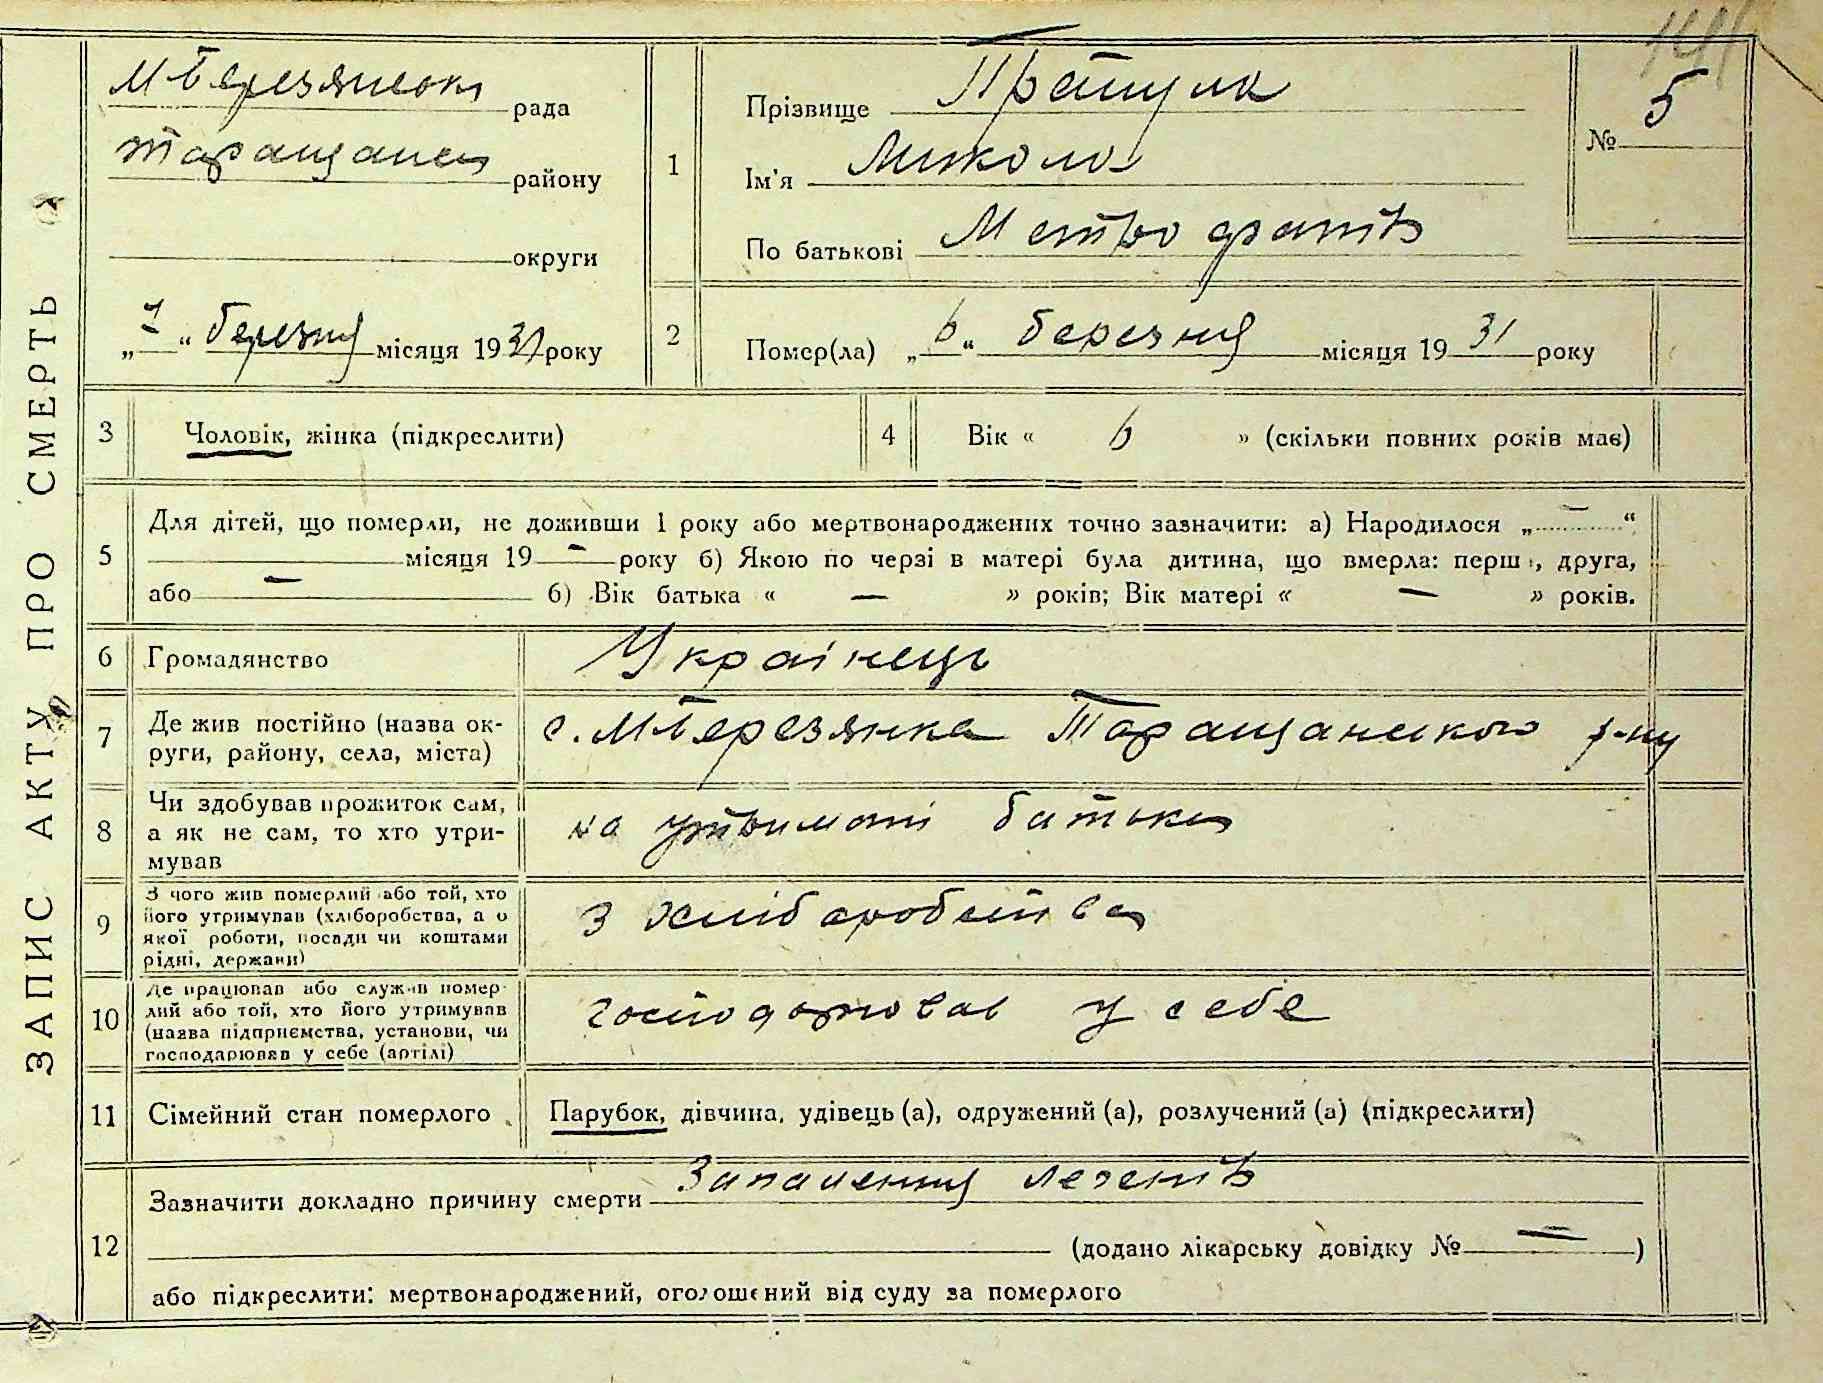 ЗАПИС АКТУ ПРО СМЕРТЬ
141
М Березянська рада
Таращанськ району
округи
„7“ березня місяця 1931 року
1
Прізвище Пратцюк
Ім'я Микола
По батькові Метрофанів
№ 5
2
Помер(ла) „6“ березня місяця 1931 року
3 Чоловік, жінка (підкреслити)
4 Вік « 6 » (скільки повних років має)
5 Для дітей, що померли, не доживши 1 року або мертвонароджених точно зазначити: а) Народилося „ — “
місяця 19 — року б) Якою по черзі в матері була дитина, що вмерла: перша, друга,
або — б) Вік батька « — » років; Вік матері « — » років.
6 Громадянство Українець
7 Де жив постійно (назва ок-
руги, району, села, міста)
с. МБерезянка Таращанського р-ну
8 Чи здобував прожиток сам,
а як не сам, то хто утри-
мував
на утримані батька
9 З чого жив померлий або той, хто
його утримував (хліборобства, а о
якої роботи, посади чи коштами
рідні, держави)
з хліборобства
10 Де працював або служив помер-
лий або той, хто його утримував
(назва підприємства, установи, чи
господарював у себе (артілі)
господарював у себе
11 Сімейний стан померлого Парубок, дівчина, удівець (а), одружений (а), розлучений (а) (підкреслити)
12 Зазначити докладно причину смерти Запалення легенів
(додано лікарську довідку № — )
або підкреслити: мертвонароджений, оголошений від суду за померлого